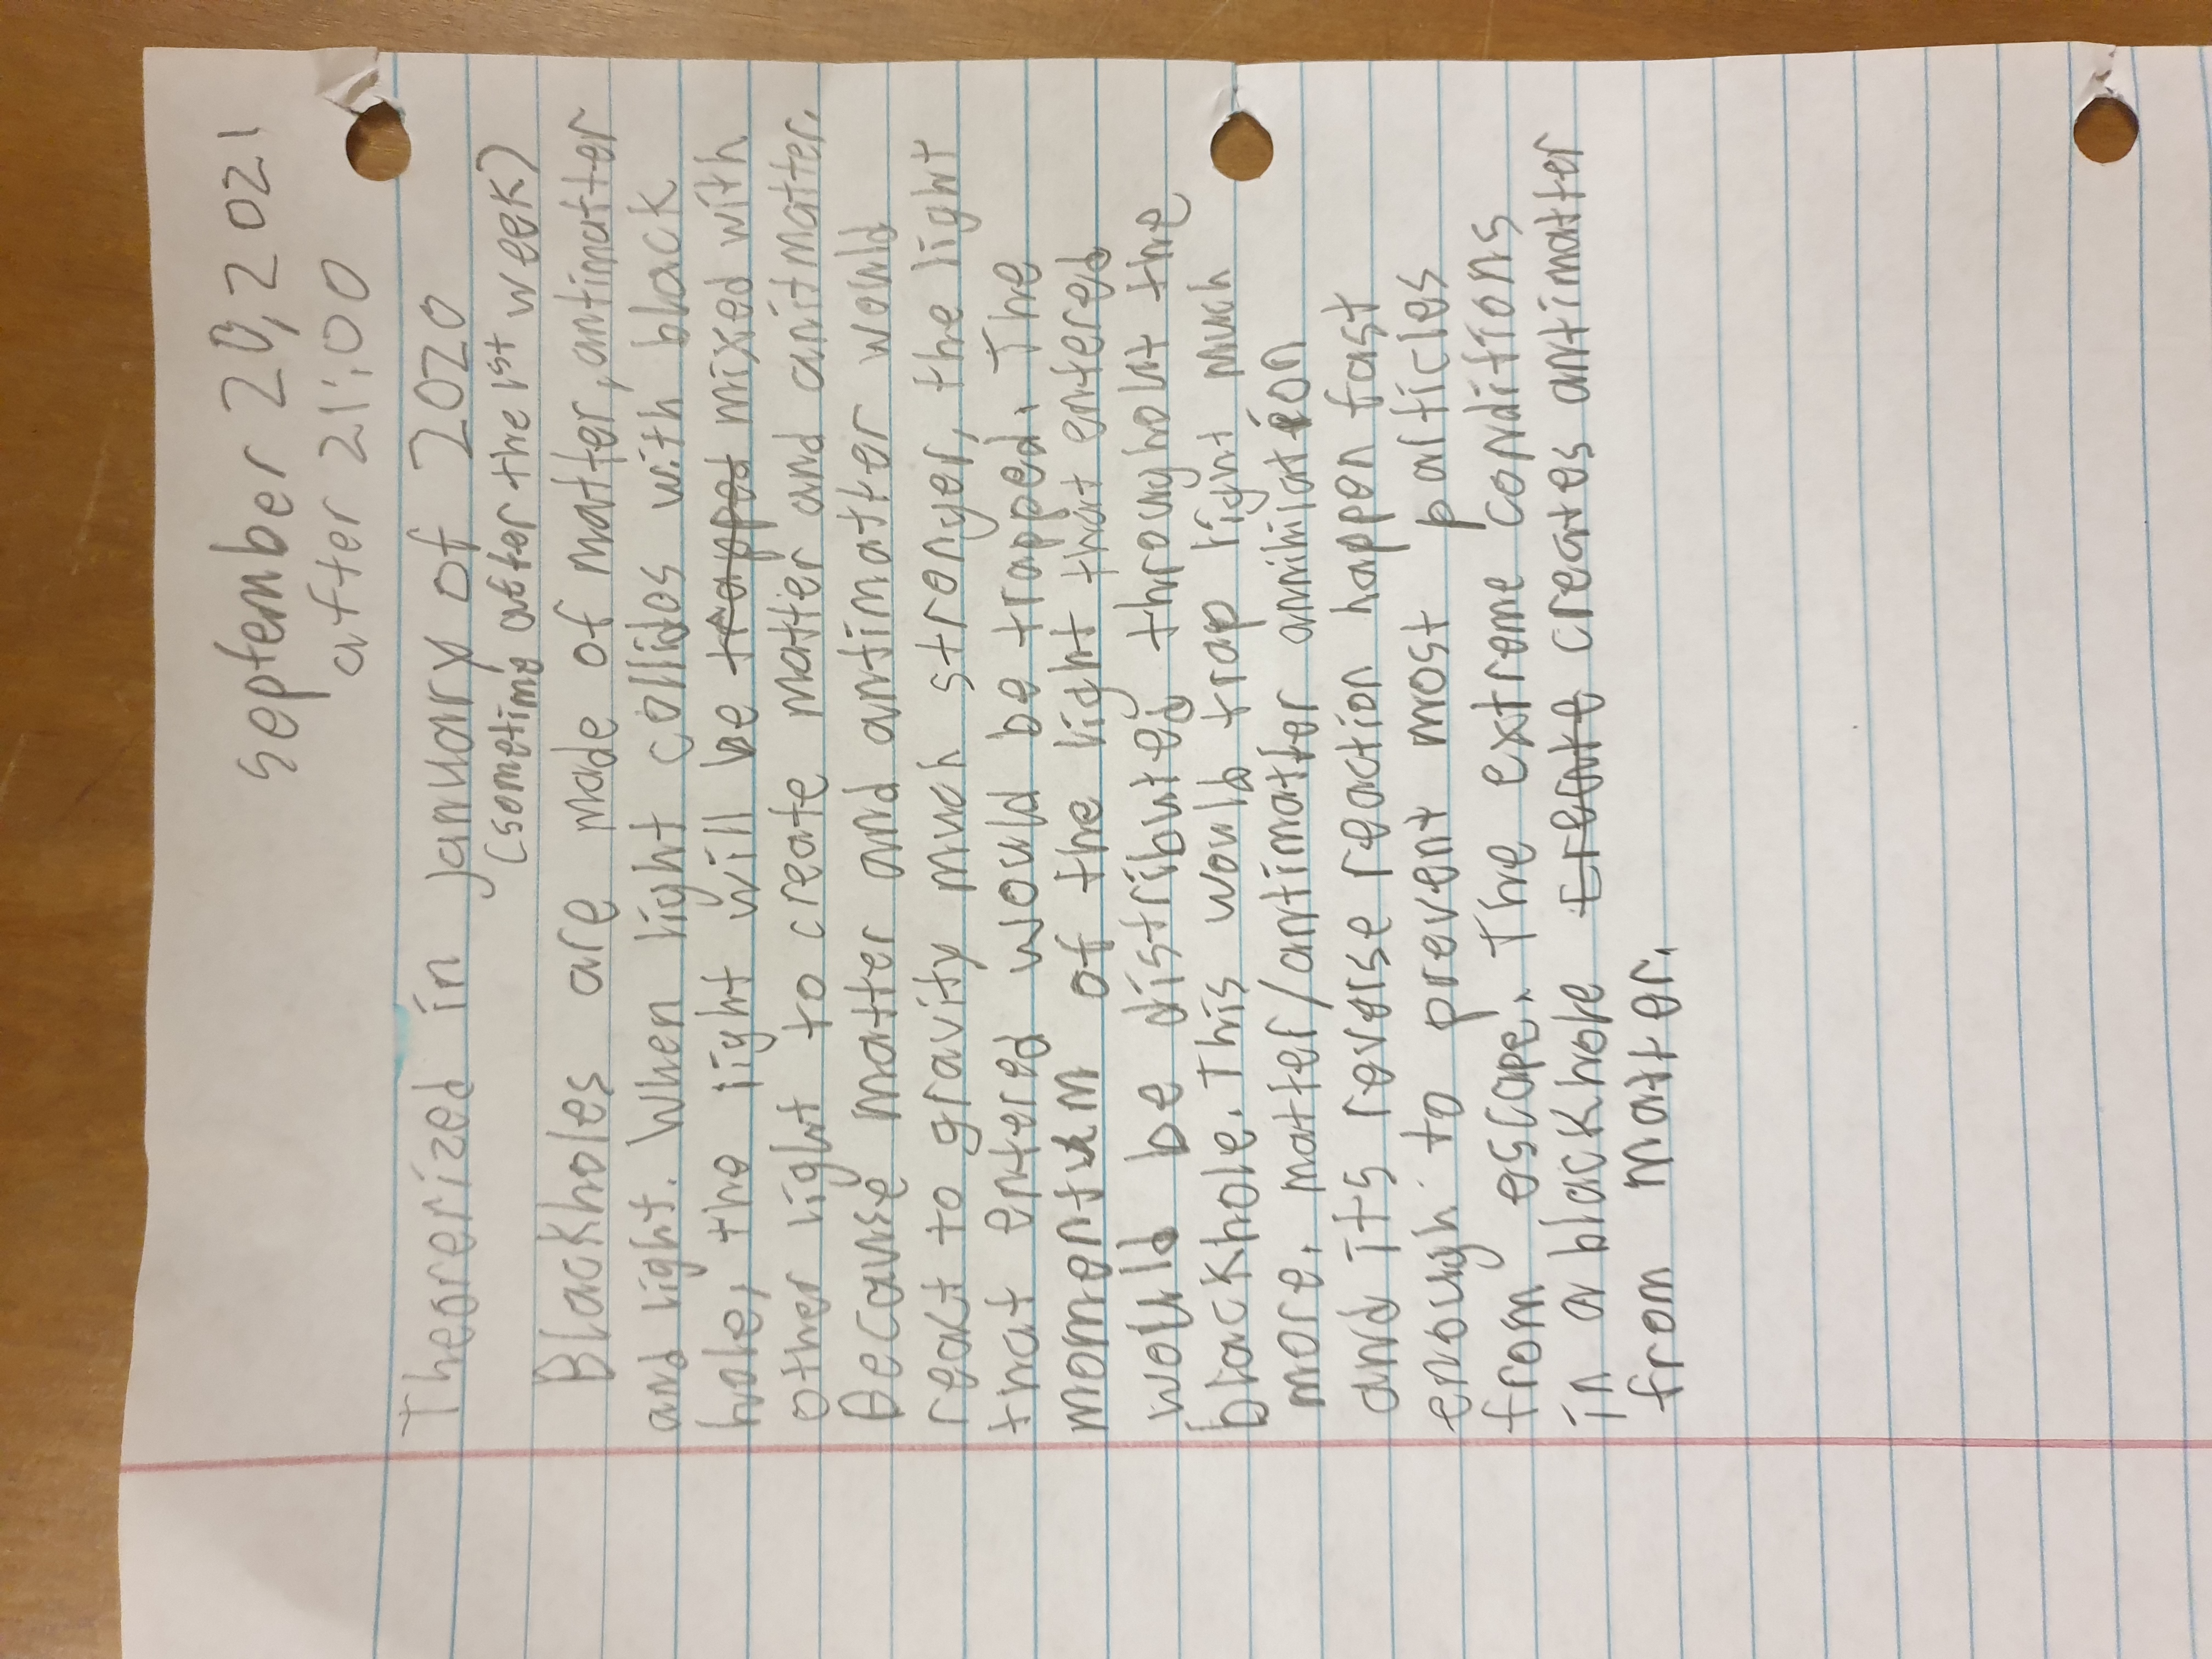 september 20, 2021
after 21:00
Theorerized in january of 2020
(sometime after the 1st week)
Blackholes are made of matter, antimatter
and light. When light collides with black
hole, the light will be trapped mixed with
other light to create matter and anitmatter.
Because matter and antimatter would
react to gravity much stronger, the light
that entered would be trapped. The
momentum of the light that entered
would be distributed throughout the
blackhole. This would trap light much
more. matter/antimatter annihilation
and its reverse reaction happen fast
enough to prevent most particles
from escape. The extreme conditions
in a blackhole create creates antimatter
from matter.